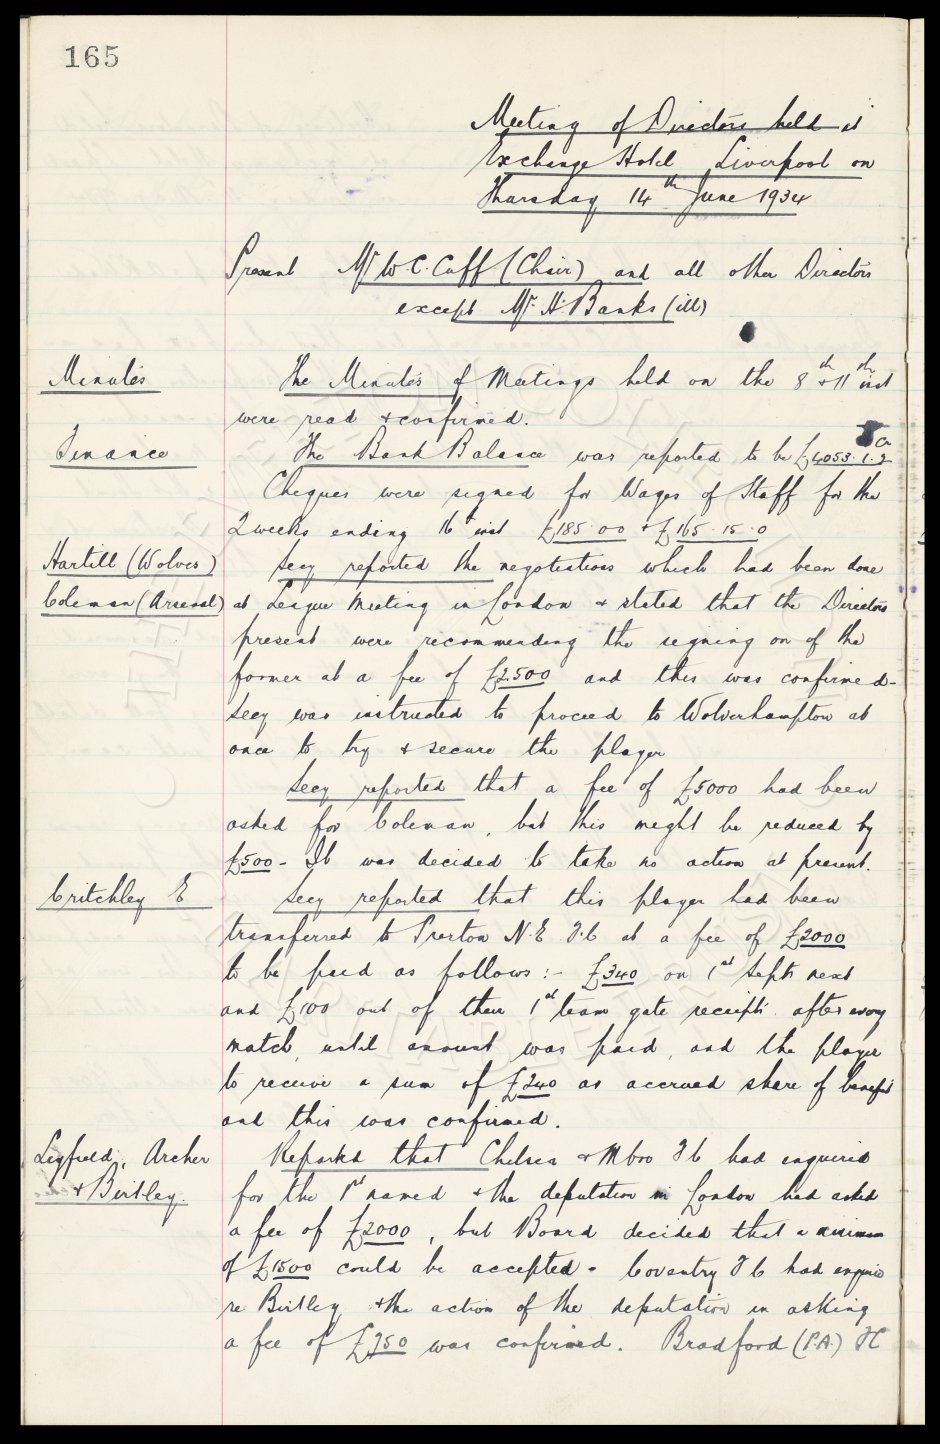 165
Meeting of Directors held at
Exchange Hotel Liverpool on
Thursday 14th June 1934
Present Mr W.C. Cuff (Chair) and all other Directors
except Mr. H. Banks (ill)
Minutes
The Minutes of Meetings held on the 8th & 11th inst
were read & confirmed.
Finance
The Bank Balance was reported to be £4053. 1. 2 Cr
Cheques were signed for Wages of Staff for the
2 weeks ending 16th inst £185.0.0 & £165.15.0
Hartill (Wolves)
Coleman (Arsenal)
Secy reported the negotiations which had been done
at League Meeting in London & stated that the Directors
present were recommending the signing on of the
former at a fee of £2500 and this was confirmed-
Secy was instructed to proceed to Wolverhampton at
once to try & secure the player
Secy reported that a fee of £5000 had been
asked for Coleman, but this might be reduced by
£500 - It was decided to take no action at present.
Critchley E
Secy reported that this player had been
transferred to Preston N.E. F.C at a fee of £2000
to be paid as follows:- £340 on 1st Sept next
and £100 out of their 1st team gate receipts after every
match, until amount was paid, and the player
to receive a sum of £240 as accrued share of benefit
and this was confirmed.
Leyfield, Archer
& Birtley.
Reported that Chelsea & Mbro FC had enquired
for the 1st named & the deputation in London had asked
a fee of £2000, but Board decided that a minimum
of £1500 could be accepted. Coventry FC had enquired
re Birtley & the action of the deputation in asking
a fee of £750 was confirmed. Bradford (P.A.) FC